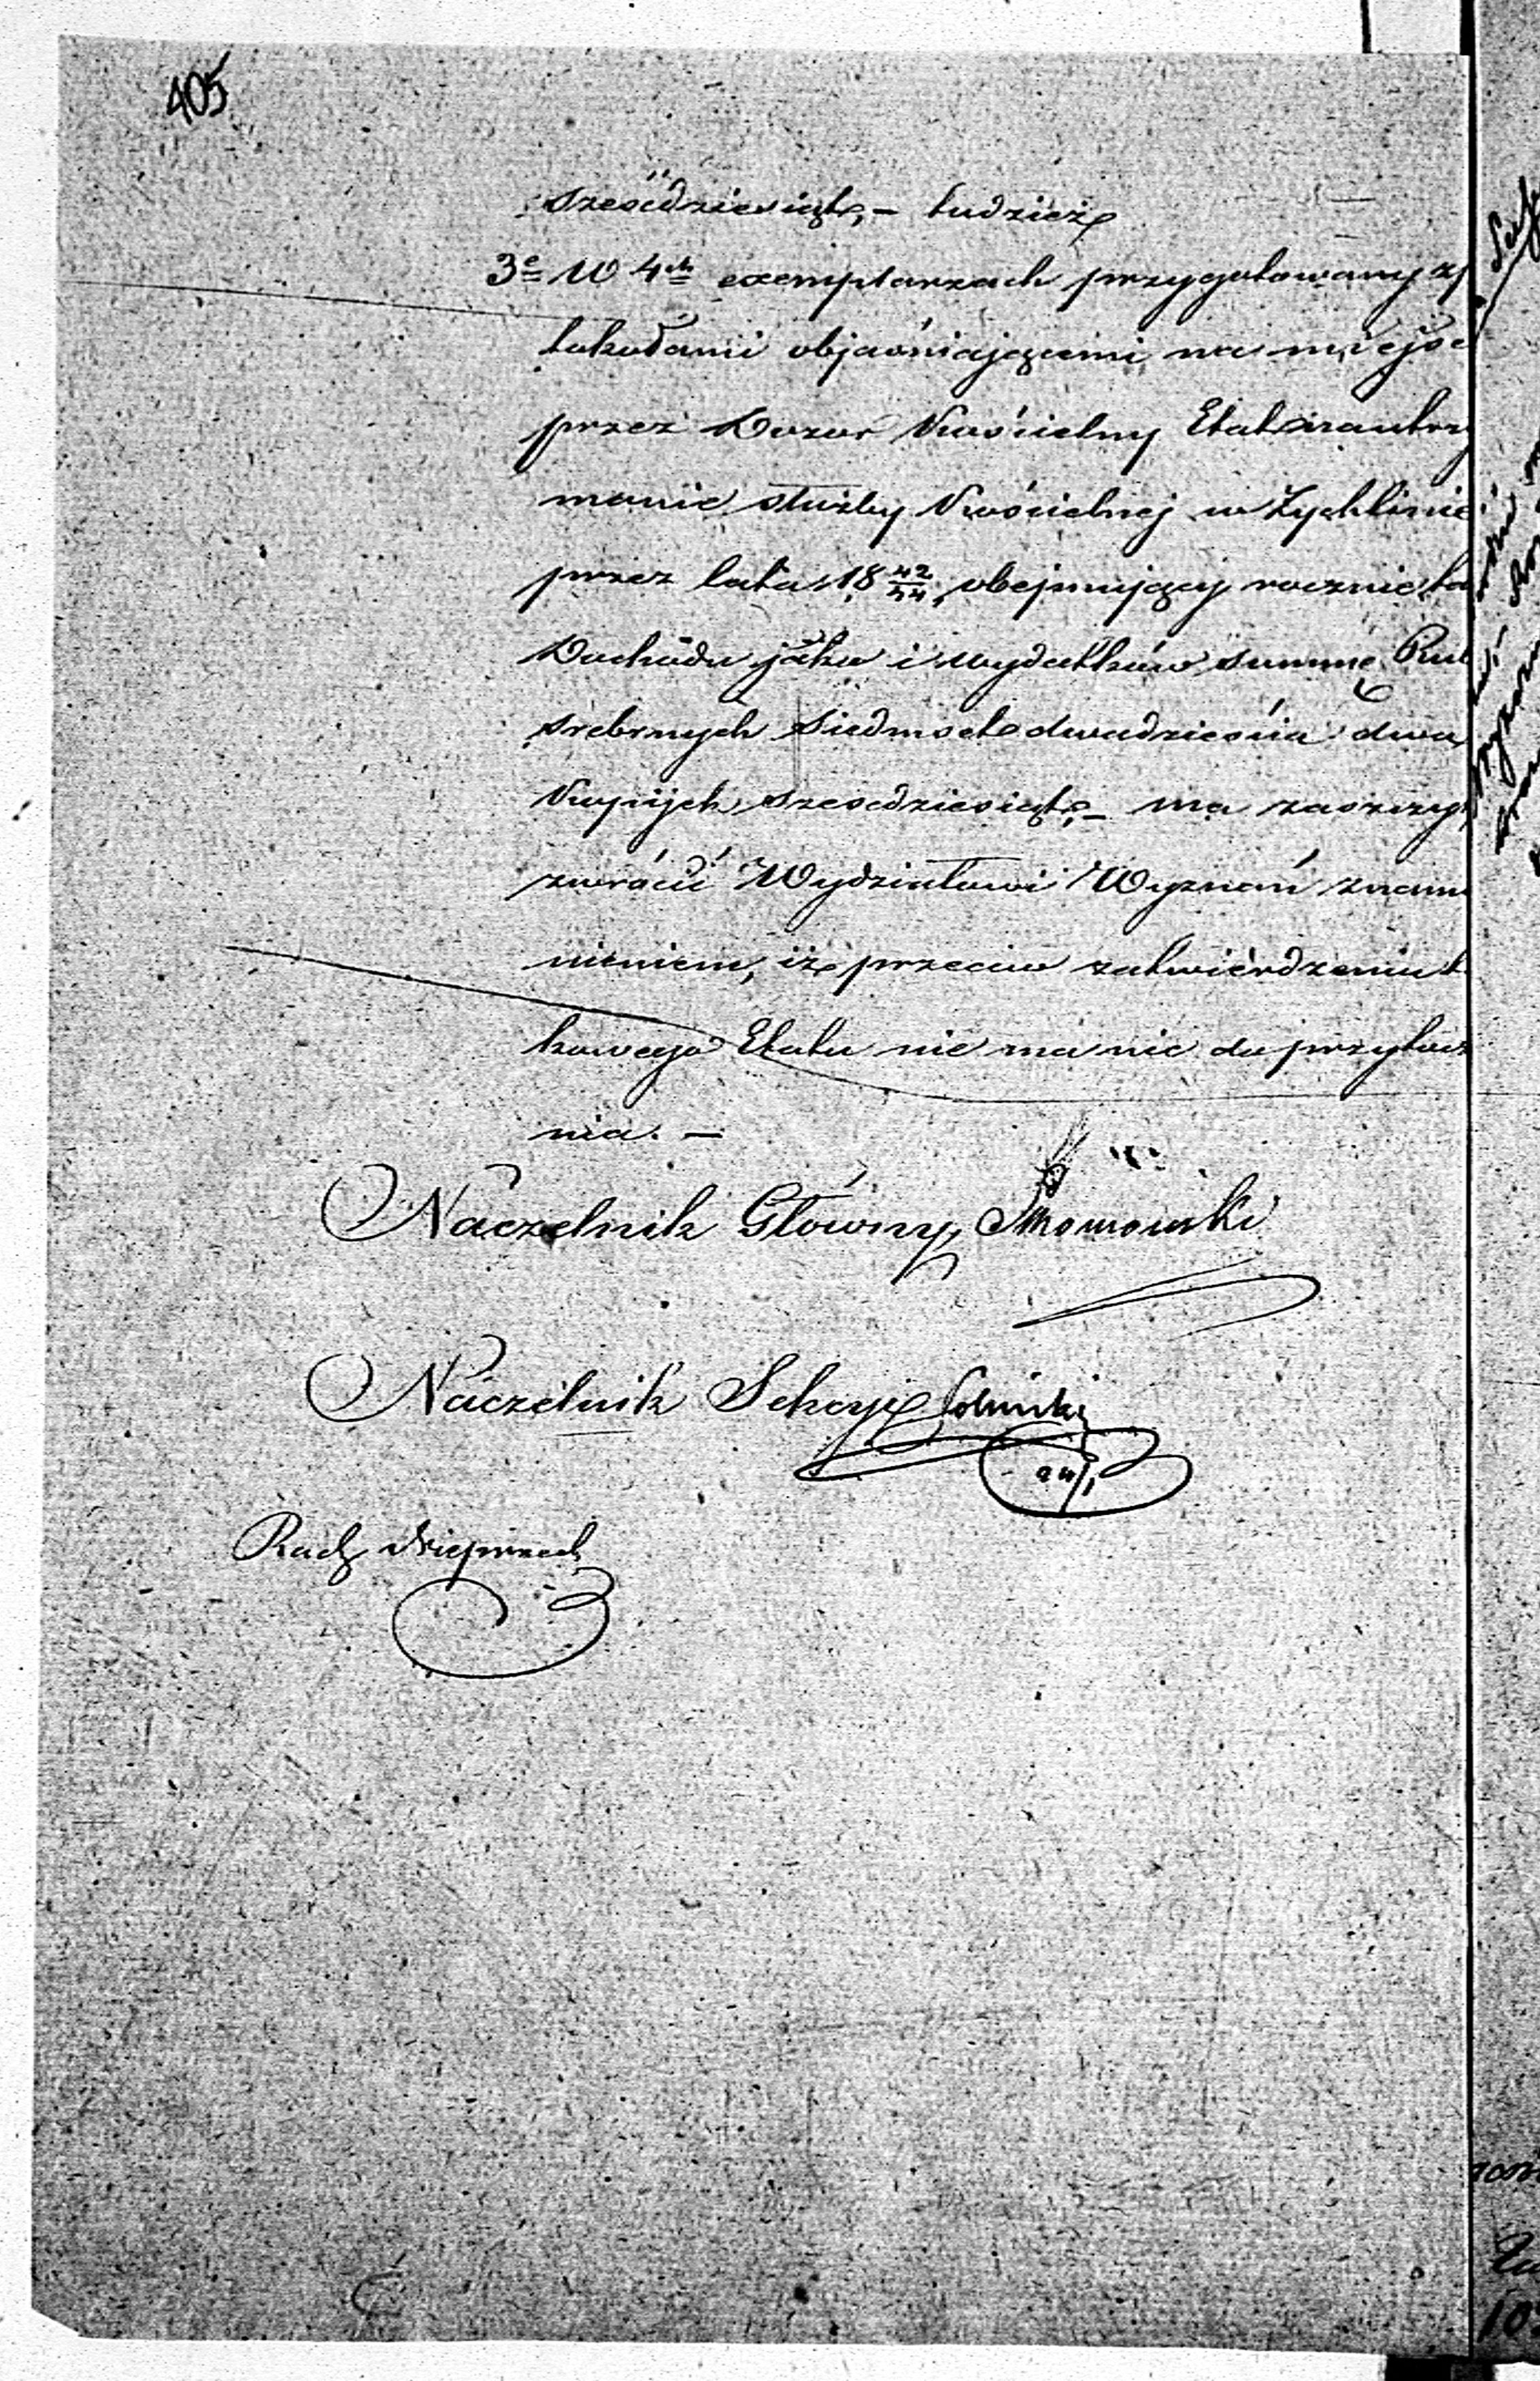 405
sześćdziesiąt, – tudzież
3e W 4ch exemplarzach przygotowany z
łakodami objaśniającemi na miejsc
przez Dozor Kościelny Etat na utrzy
manie służby Kościelnej w Żychlinie
przez lata 18 42/44, obejmujący rocznie ta
Dochodu jako i wydatków summę Rub
srebrnych siedmset dwadzieścia dwa
Kopijek sześćdziesiąt, – ma zaszczyt
zwrócić Wydziałowi Wyznań z nam
nieniem, iż przeciw zatwierdzeniu t
kowego Etatu nie ma nic do przytocz
nia. –
Naczelnik Główny
Naczelnik Sekcyi
Radz